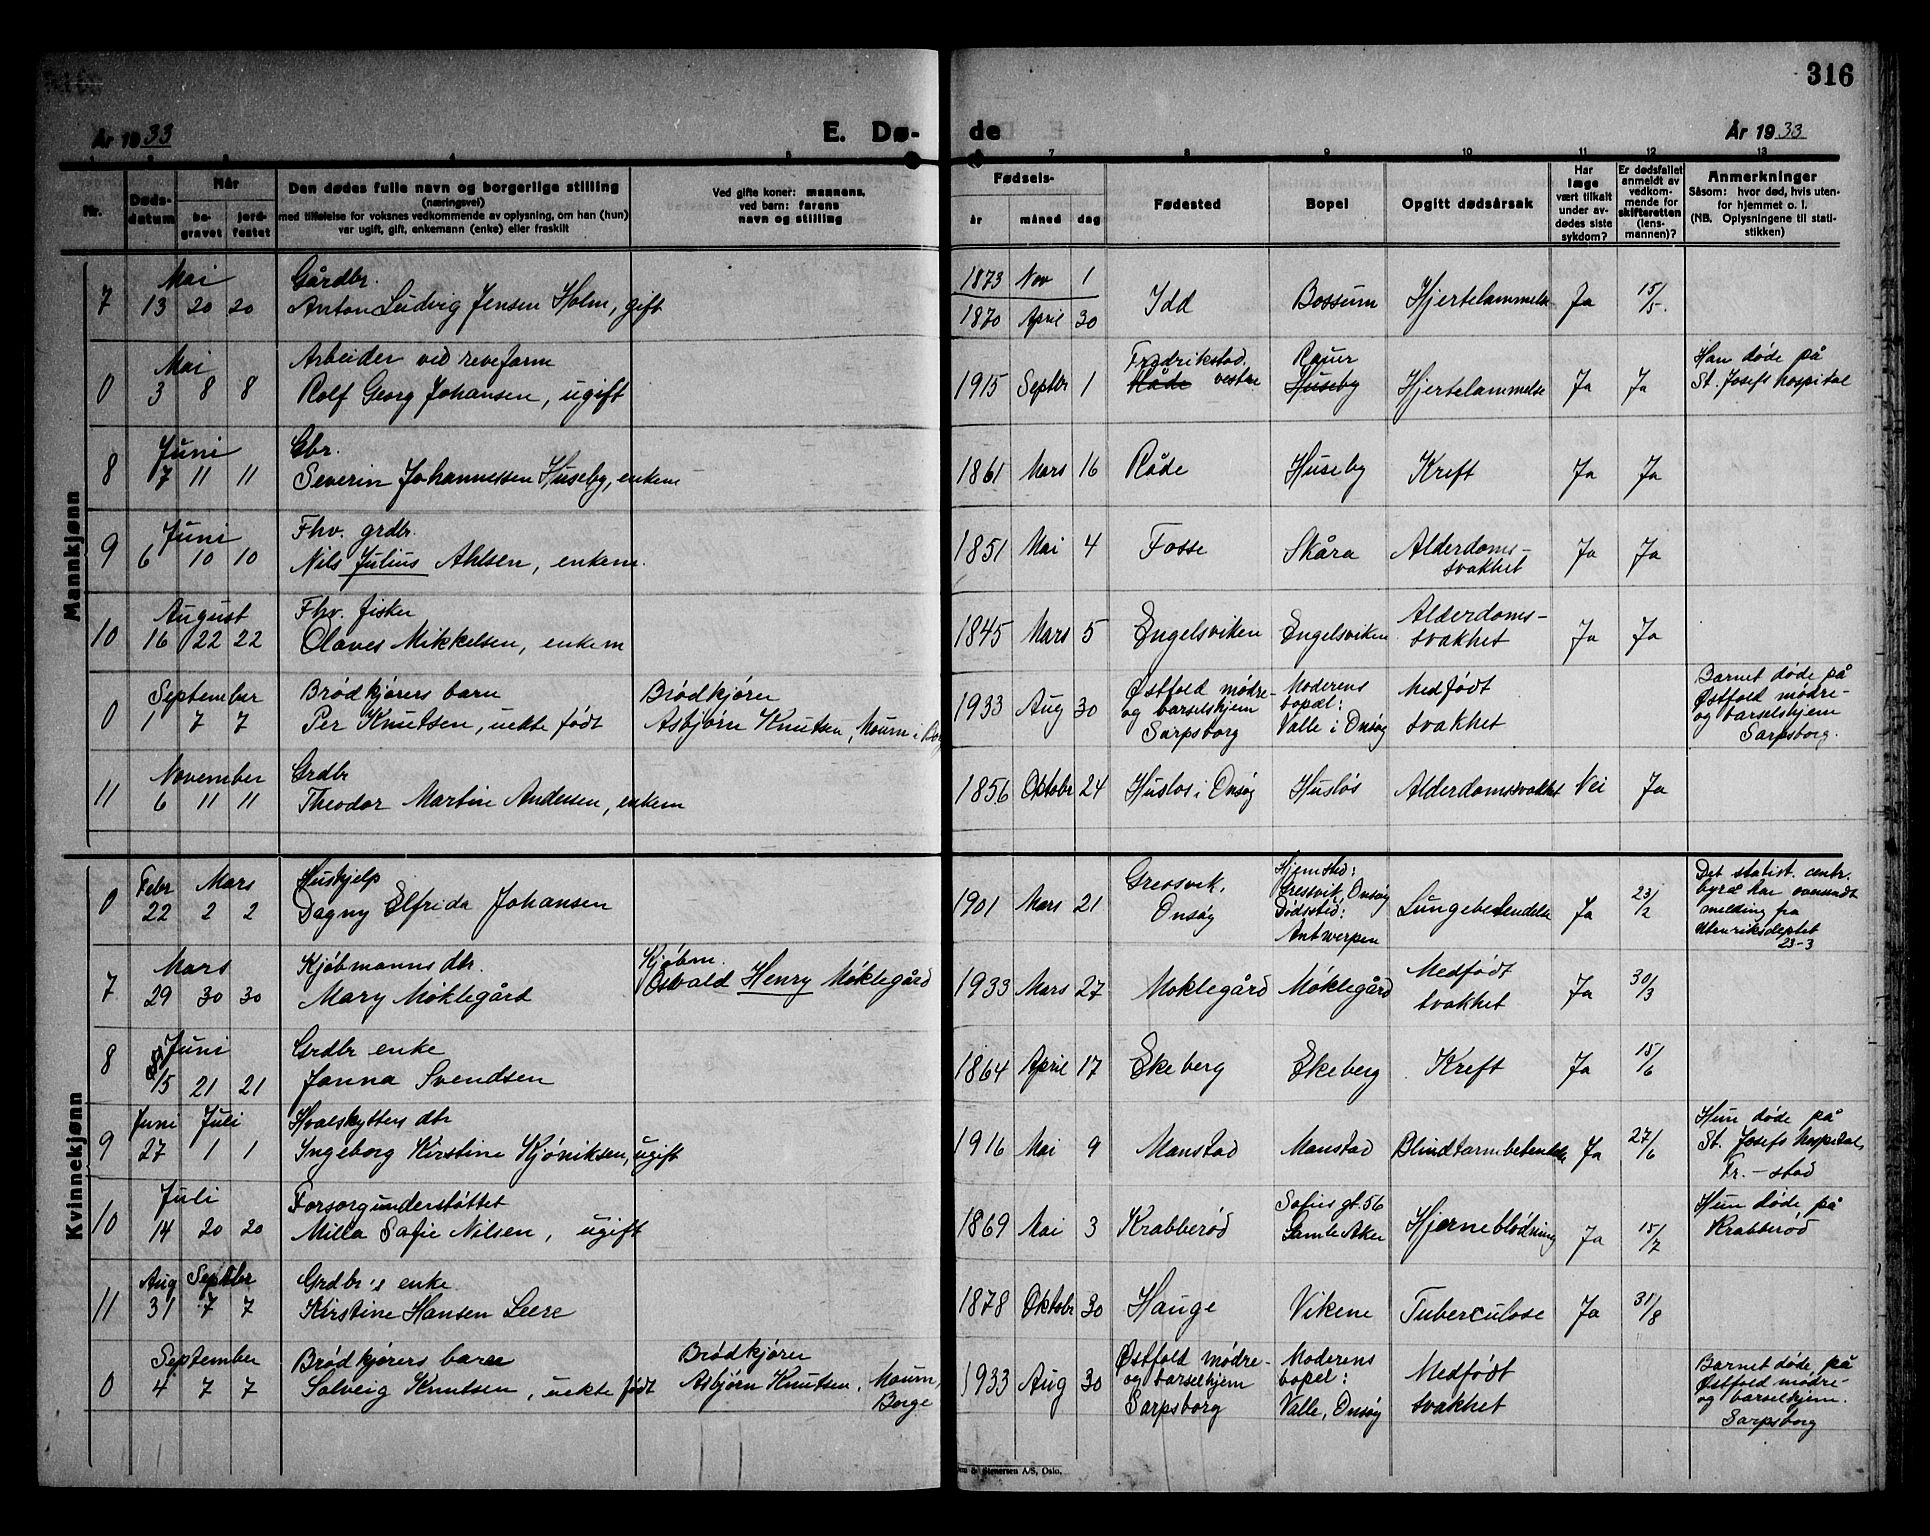 316
År 1933
E. Dø-
de
År 1933
6 7 8 9 10 11 12 13
Nr.
Døds-
datum
Når
be-
gravet
jord-
festet
Den dødes fulle navn og borgerlige stilling
(næringsvei)
med tilføielse for voksnes vedkommende av oplysning, om han (hun)
var ugift, gift, enkemann (enke) eller fraskilt
Ved gifte koner: mannens,
ved barn: farens
navn og stilling
Fødsels-
år
måned
dag
Fødested
Bopel
Opgitt dødsårsak
Har
læge
vært tilkalt
under av-
dødes siste
sykdom?
Er dødsfallet
anmeldt av
vedkom-
mende for
skifteretten
(lens-
mannen)?
Anmerkninger
Såsom: hvor død, hvis uten-
for hjemmet o. l.
(NB. Oplysningene til stati-
stikken)
Mannkjønn
7
Mai
13 20 20
Gårdbr.
Anton Ludvig Jensen Holm, gift
1873 Nov 1
1870 April 30
Idd
Bossum
Hjertelammelse
Ja
15/5.
0
Mai
3 8 8
Arbeider ved revefarm
Rolf Georg Johansen, ugift
1915 Septbr 1
Fredrikstad.
Råde vestre
Rauer
Huseby
Hjertelammelse
Ja
Ja
Han døde på
St. Josefs hospital
8
Juni
7 11 11
Gbr.
Severin Johannessen Huseby, enkem
1861 Mars 16
Råde
Huseby
Kreft
Ja
Ja
9
Juni
6 10 10
Fhv. grdbr.
Nils Julius Ahlsen, enkem.
1851 Mai 4
Fosse
Skåra
Alderdoms-
svakhet
Ja
Ja
10
August
16 22 22
Fhv. fisker
Olaves Mikkelsen, enkem
1845 Mars 5
Engelsviken
Engelsviken
Alderdoms-
svakhet
Ja
Ja
0
September
1 7 7
Brødkjørers barn
Per Knutsen, uekte født
Brødkjører
Asbjørn Knutsen, Moum i
1933 Aug 30
Østfold mødre-
og barselshjem
Sarpsborg
Moderens
bopæl:
Valle i Onsøy
Medfødt
svakhet
Barnet døde på
Østfold mødre-
og barselshjem
Sarpsborg.
11
November
6 11 11
Grdbr
Theodor Martin Andersen, enkem
1856 Oktobr 24
Husløs i Onsøy
Husløs
Alderdomssvakhet
Nei
Ja
Kvinnekjønn
0
Febr Mars
22 2 2
Hushjelp
Dagny Elfrida Johansen
1901 Mars 21
Gressvik,
Onsøy
Hjemsted:
Gressvik, Onsøy
Dødssted:
Antwerpen
Lungebetendelse
Ja
23/2
Det statist. centr.
byrå har oversendt
melding fra
Utenriksdeptet
23-3
7
Mars
29 30 30
Kjøbmanns dtr.
Mary Møklegård
Kjøbm.
Osvald Henry Møklegård
1933 Mars 27
Moklegård
Møklegård
Medfødt
svakhet
Ja
30/3
8
Juni
15 21 21
Grdbr enke
Janna Svendsen
1864 April 17
Ekeberg
Ekeberg
Kreft
Ja
15/6
9
Juni Juli
27 1 1
Hvalskytters dtr
Ingeborg Kirstine Kjøniksen, ugift
1916 Mai 9
Manstad
Manstad
Blindtarmbetendelse
Ja
27/6
Hun døde på
St. Josefs hospital,
Fr.-stad
10
Juli
14 20 20
Forsorgunderstøttet
Milla Sofie Nilsen, ugift
1869 Mai 3
Krabberød
Sofies gt. 56
Gamle Aker
Hjerneblødning
Ja
15/7
Hun døde på
Krabberød
11
Aug Septbr
31 7 7
Grdbr's enke
Kirstine Hansen Leere
1878 Oktobr 30
Hauge
Vikene
Tuberculose
Ja
31/8
0
September
4 7 7
Brødkjørers barn
Solveig Knutsen, uekte født
Brødkjører
Asbjørn Knutsen, Moum,
Borge
1933 Aug 30
Østfold mødre-
og barselhjem
Sarpsborg
Moderens
bopel:
Valle, Onsøy
Medfødt
svakhet
Barnet døde på
Østfold mødre-
og barselhjem.
Sarpsborg
& Stenersen A/S, Oslo.